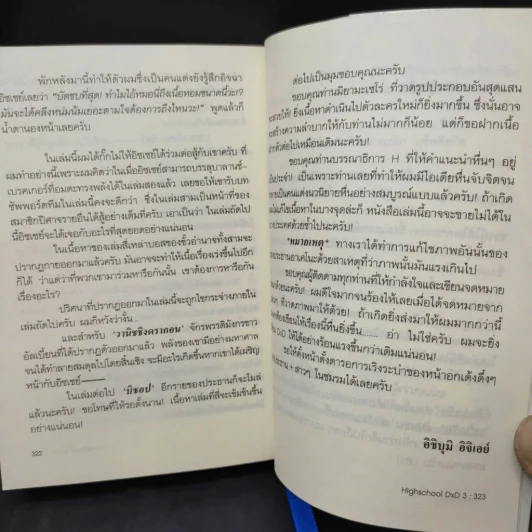 พักหลังมานี้ทำให้ตัวผมซึ่งเป็นคนแต่งยังรู้สึกอิจฉา
อิซเซย์เลยว่า "บัดซบที่สุด! ทำไมไอ้หมอนี่ถึงเนื้อหอมขนาดนี้วะ!?
มันจะได้คลึงหน่มน้มเยอะตามใจต้องการถึงไหนวะ!" พูดแล้วก็
น้ำตานองหน้าเลยครับ
ในเล่มนี้ผมได้กั๊กไม่ให้อิซเซย์ได้ร่วมต่อสู้กับเขาครับ ที่
ผมทำอย่างนี้เพราะผมคิดว่าในเมื่ออิซเซย์สามารถบรรลุบาลานซ์-
เบรคเกอร์ที่อมตะทรงพลังได้ในเล่มสองแล้ว เลยขอให้เขารับบท
ซัพพอร์ตทีมในเล่มนี้คงจะดีกว่า ซึ่งในเล่มสามเป็นหน้าที่ของ
สมาชิกปีศาจรายอื่นได้สู้อย่างเต็มที่ครับ เอาเป็นว่า ในเล่มถัดไป
นี้อิซเซย์จะได้เจอกับอะไรที่สุดยอดอย่างแน่นอน
ในเนื้อหาของเล่มสี่เหล่าบอสของขั้วอำนาจทั้งสามจะ
ปรากฏกายออกมาแล้วครับ มันอาจจะทำให้เนื้อเรื่องแรงขึ้นไปอีก
ก็ได้ ว่าแต่ว่าที่พวกเขามาร่วมหารือกันนั้น เขาต้องการหารือกัน
เรื่องอะไร?
ปริศนาที่ปรากฏออกมาในเล่มนี้จะถูกไขกระจ่างภายใน
เล่มถัดไปครับ ผมก็หวังว่างั้น...
และสำหรับ "วานิชชิงดราก้อน" จักรพรรดิมังกรขาว
อัลเบี้ยนที่ได้ปรากฏตัวออกมาแล้ว พลังของเขามีอย่างมหาศาล
จนได้ทำลายสมดุลไปโดยสิ้นเชิง จะมีอะไรเกิดขึ้นหากเขาได้เผชิญ
หน้ากับอิซเซย์——
ในเล่มต่อไป "บิชอป" อีกรายของประธานก็จะโผล่
แล้วนะครับ! ขอโทษที่ให้รอตั้งนาน! เนื้อหาเล่มที่สี่จะเข้มข้นขึ้น
อย่างแน่นอน!
322
ต่อไปเป็นมุมขอบคุณนะครับ
ขอบคุณท่านมิยามะเซโร่ ที่วาดรูปประกอบอันสุดแสน
ให้! ยิ่งเนื้อหาดำเนินไปตัวละครใหม่ก็ยิ่งมากขึ้น ซึ่งนั่นอาจ
สร้างความลำบากให้กับท่านไม่มากก็น้อย แต่ก็ขอฝากเนื้อ
ตัวต่อไปเหมือนเดิมนะครับ!
ขอบคุณท่านบรรณาธิการ H ที่ให้คำแนะนำอื่นๆ อยู่
ประจำ! เป็นเพราะท่านเลยที่ทำให้ผมมีไอเดียหื่นจับจิตจน
เป็นคนแต่งนวนิยายหื่นอย่างสมบูรณ์แบบแล้วครับ! ถ้าเกิด
แก้ไขเนื้อหาในบางจุดล่ะก็ หนังสือเล่มนี้อาจจะขายไม่ได้ใน
ประเทศด้วยซ้ำไปนะครับ!
"หมายเหตุ" ทางเราได้ทำการแก้ไขภาพอันนั้นของ
ประธานอาเคโนะด้วยสาเหตุที่ว่าภาพนั้นมันแรงเกินไป
ขอบคุณผู้ติดตามทุกท่านที่ให้กำลังใจและเขียนจดหมาย
นะครับ! ผมดีใจมากจนร้องไห้เลยเมื่อได้จดหมายจาก
ที่วาดภาพมาให้ด้วย! ถ้าเกิดยิ่งส่งมาให้ผมมากกว่านี้
เขียนให้เรื่องนี้หื่นยิ่งขึ้น...... อ่า ไม่ใช่ครับ! ผมจะยิ่ง
DxD ให้ได้อย่างร้อนแรงขึ้นกว่าเดิมแน่นอน!
ขอให้ตั้งหน้าตั้งตารอการเริงระบำของหน้าอกเด้งดึ๋งๆ
ประธาน + สาวๆ ในชมรมได้เลยครับ
อิชิบุมิ อิจิเอย์
Highschool DxD 3 : 323